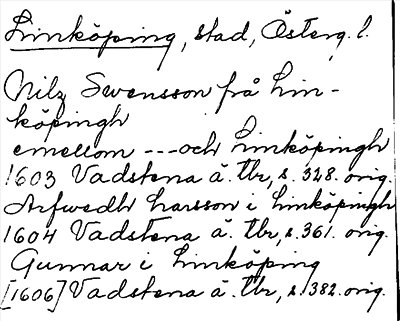 Linköping, stad, Österg. l.
Nilz Swensson frå Lin-
köpingh
emellom --- och Linköpingh
1603 Vadstena ä. tbr, s. 328. orig.
Arfwedh Larsson i Linköpingh
1604 Vadstena ä. tbr, s. 361. orig.
Gunnar i Linköping
[1606] Vadstena ä. tbr, s. 382. orig.